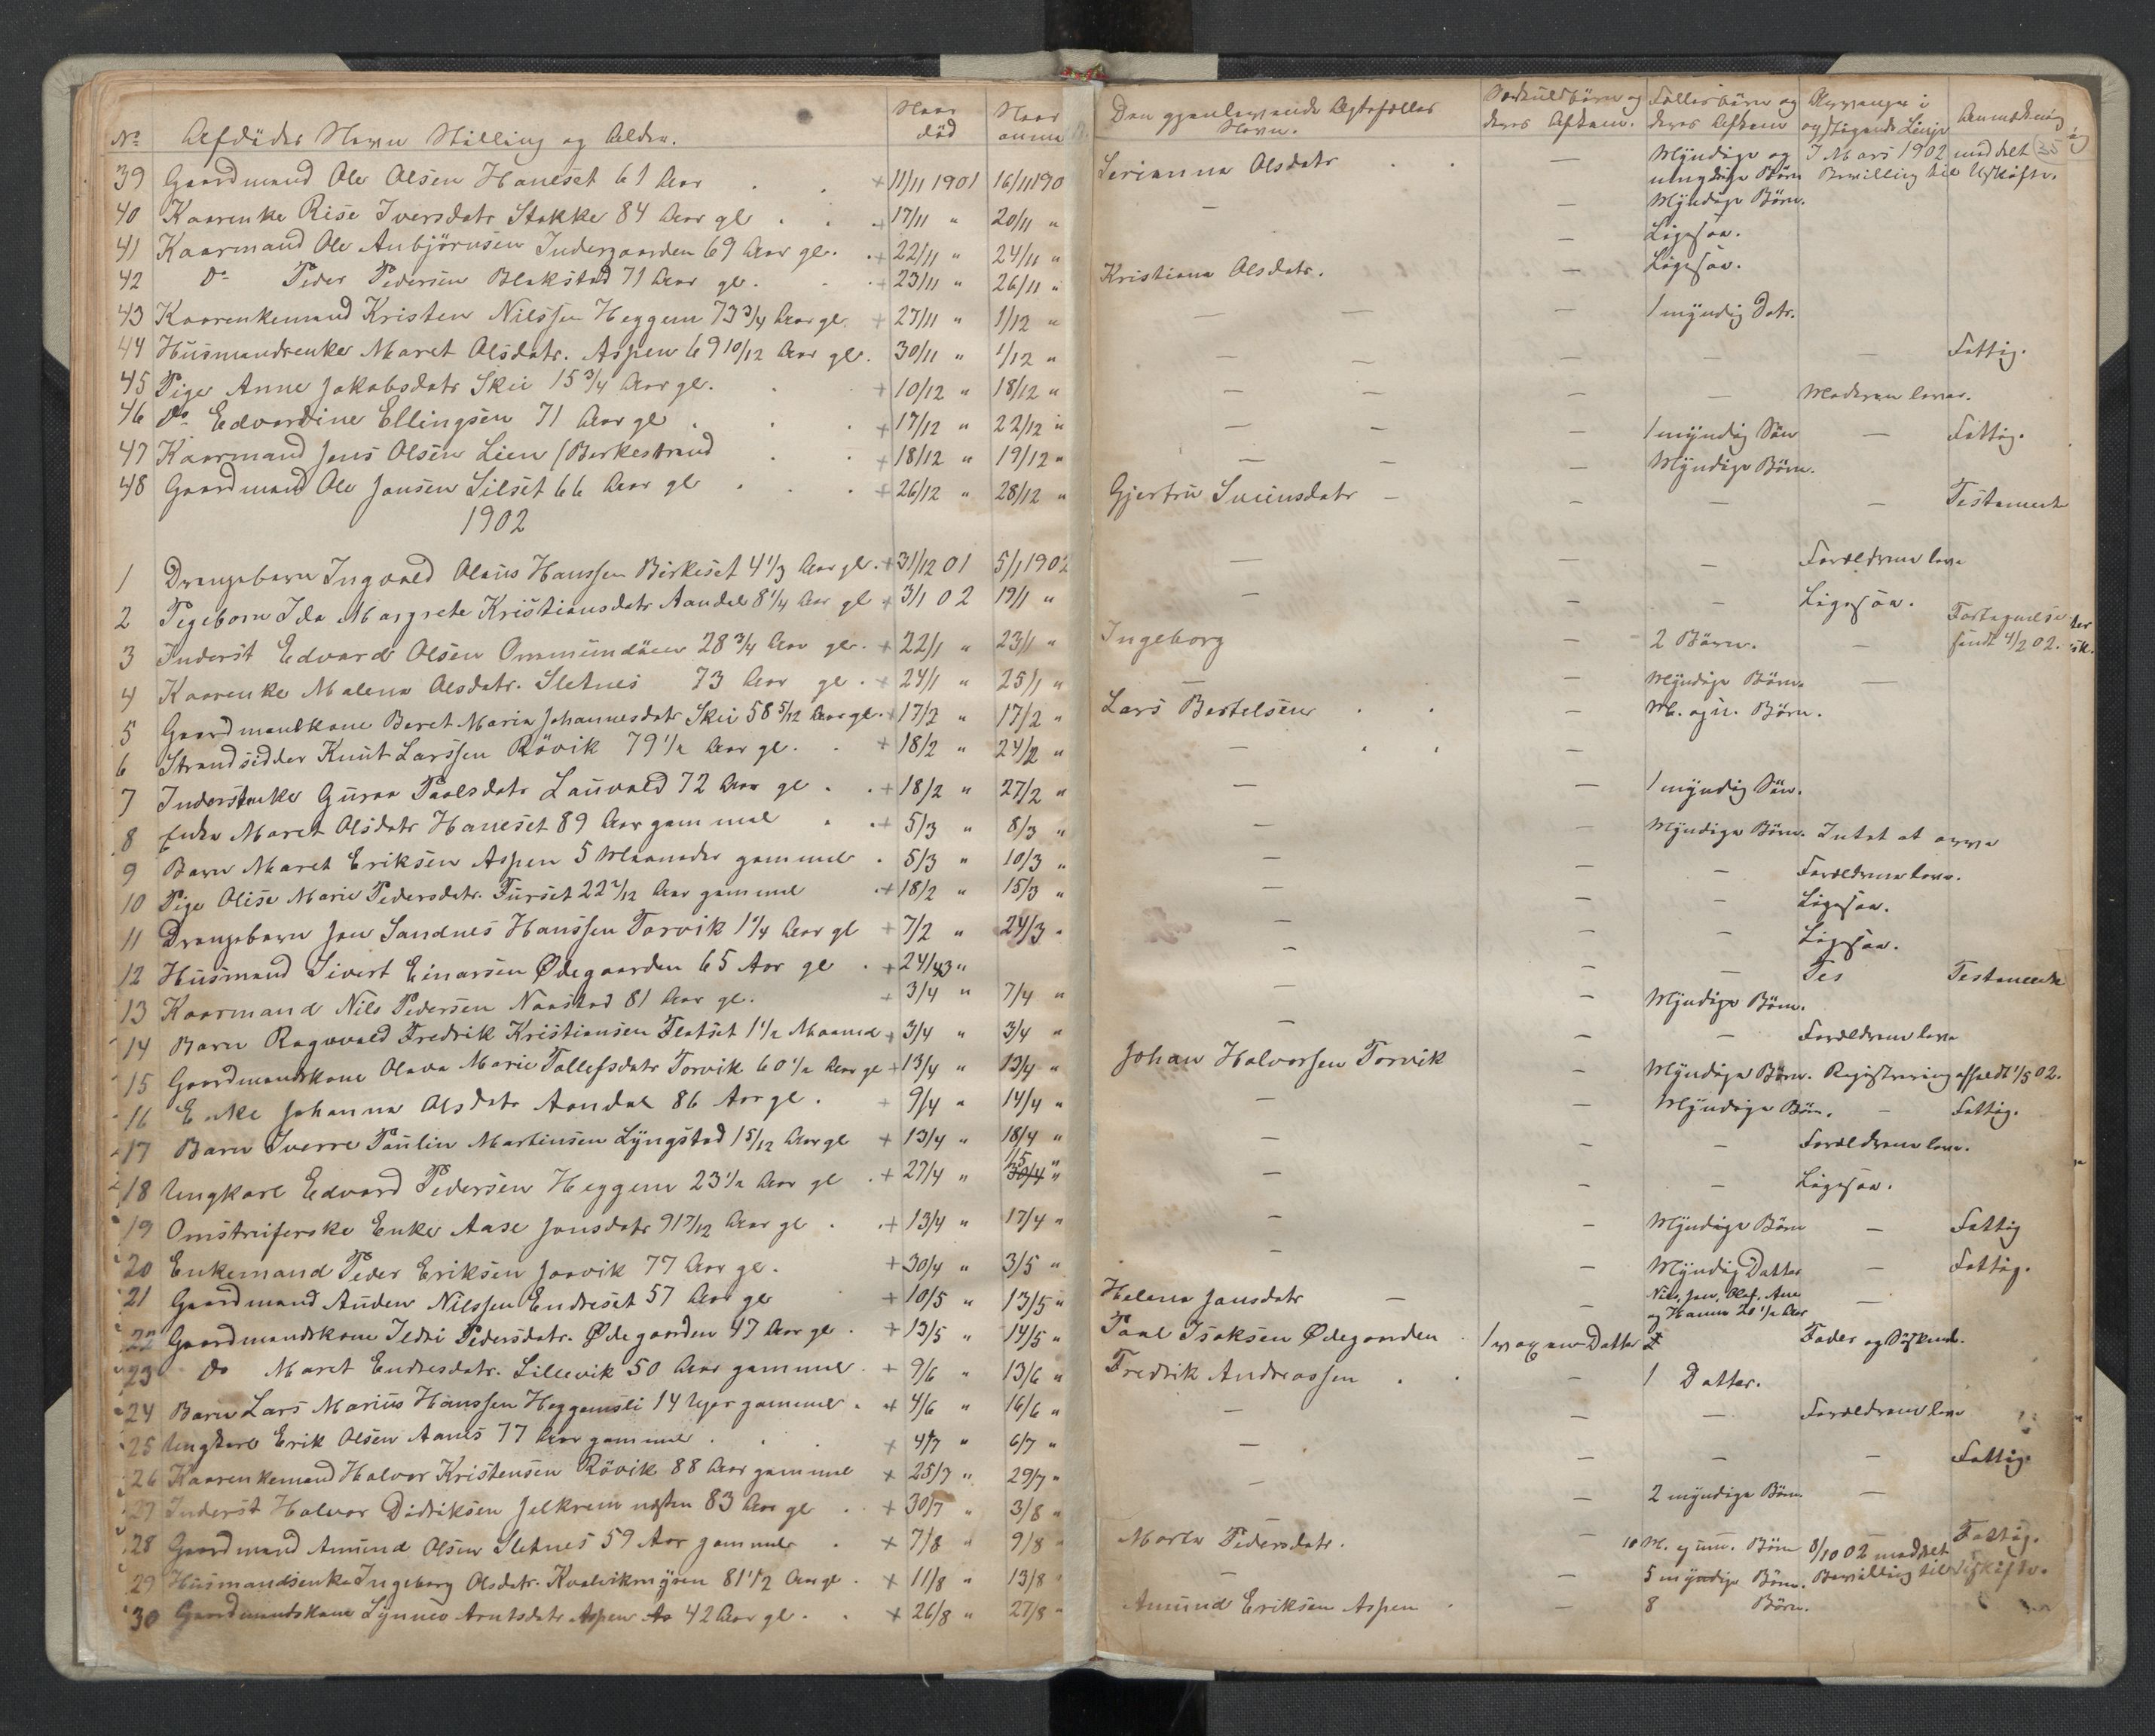 No Afdödes Navn Stilling og Alder. Naar död Naar anm Den gjenlevende Ægtefælles Navn. Særkuldbörn og deres Afkom. Fællesbörn og deres Afkom Arvinge i opstigende Linje Anmærkning
39 Gaardmand Ole Olsen Haneset 61 Aar + 11/11 1901 16/11 190 Serianna Olsdatr — Myndige og umyndige Börn I Mars 1902 meddelt Bevilling til Uskifte. 35
40 Kaarenke Rise Iversdatr Stokke 84 Aar gl + 17/11 " 20/11 " — — Myndige Börn.
41 Kaarmand Ole Anbjörnsen Indergaarden 69 Aar gl. + 22/11 " 24/11 " — Ligesaa.
42 Do Peder Pedersen Blakstad 71 Aar gl. + 23/11 " 26/11 " Kristiana Olsdatr. — Ligesaa.
43 Kaarenkemand Kristen Nilssen Heggem 73 3/4 Aar gl. + 27/11 " 1/12 " — — — 1 myndig Datr.
44 Husmandsenke Maret Olsdatr. Aspen 69 10/12 Aar gl. 30/11 " 1/12 " — — — — — Fattig.
45 Pige Anne Jakobsdatr Skei 15 3/4 Aar gl. + 10/12 " 18/12 " — — — — Moderen lever.
46 Do Edvardine Ellingsen 71 Aar gl + 17/12 " 22/12 " — — — 1 myndig Sön — Fattig.
47 Kaarmand Jens Olsen Lien / Berkestrand + 18/12 " 19/12 " — — — Myndige Börn.
48 Gaardmand Ole Jonsen Silset 66 Aar gl + 26/12 " 28/12 " Gjertru Sveinsdatr — — — — Testamente
1902
1 Drengebarn Ingvald Olaus Hanssen Birkeset 4 1/3 Aar gl. + 31/12 01 5/1 1902 — — — Forældrene leve
2 Pigebarn Ida Margrete Kristiansdatr Aandal 8 1/4 Aar gl + 3/1 02 19/1 " — — — Ligesaa.
3 Inderst Edvard Olsen Ommundöen 28 3/4 Aar gl. + 22/1 " 23/1 " Ingeborg — 2 Börn. — Fortegnelse sendt 4/2 02.
4 Kaarenke Malena Olsdatr. Sletnes 73 Aar gl. + 24/1 " 25/1 " — — Myndige Börn. —
5 Gaardmandskone Beret Maria Johannesdatr Skei 58 5/12 Aar gl. + 17/2 " 17/2 " Lars Bertelsen — M. og u. Börn.
6 Strandsidder Knut Larssen Rövik 79 1/2 Aar gl. + 18/2 " 24/2 " — —
7 Inderstenke Guraa Paalsdatr Lauvald 72 Aar gl + 18/2 " 27/2 " — — 1 myndig Sön.
8 Enke Maret Olsdatr Haneset 89 Aar gammel + 5/3 " 8/3 " — — Myndige Börn. Intet at arve
9 Barn Maret Eriksen Aspen 5 Maaneder gammel 5/3 " 10/3 " — — — Forældrene leve.
10 Pige Olise Marie Pedersdatr. Furset 22 7/12 Aar gammel + 18/2 " 15/3 " — — — Ligesaa.
11 Drengebarn Jon Sandnes Hanssen Torvik 1 1/4 Aar gl + 7/2 " 24/3 " — — — Ligesaa.
12 Husmand Sivert Einarsen Ødegaarden 65 Aar gl + 24/3 " — — — Tes Testamente
13 Kaarmand Nils Pedersen Naastad 81 Aar gl. + 3/4 " 7/4 " — — Myndige Börn.
14 Barn Ragnvald Fredrik Kristiansen Flatset 1 1/2 Maaned + 3/4 " 3/4 " — — — Forældrene leve
15 Gaardmandskone Olava Marie Tollefsdatr Torvik 60 1/2 Aar gl + 13/4 " 13/4 " Johan Halvorsen Torvik — Myndige Börn. Registrering afholdt 1/5 02.
16 Enke Johanna Olsdatr Aandal 86 Aar gl. + 9/4 " 14/4 " — — Myndige Börn. — Fattig.
17 Barn Sverre Paulin Martinsen Lyngstad 1 5/12 Aar gl + 13/4 " 18/4 " — — — Forældrene leve.
18 Ungkarl Edvard Pedersen Heggem 23 1/2 Aar gl + 27/4 " 1/5 " 30/4 " — — — Ligesaa.
19 Omstreiferske Enke Aase Jonsdatr 91 7/12 Aar gl + 13/4 " 17/4 " — — Myndige Börn — Fattig
20 Enkemand Peder Eriksen Joavik 77 Aar gl. + 30/4 " 3/5 " — — Myndig Datter — Fattig.
21 Gaardmand Anders Nilssen Endreset 57 Aar gl + 10/5 " 13/5 " Helena Jonsdatr — — Nils, Jon, Olaf, Ane og Hanna 20 1/2 Aar —
22 Gaardmandskone Sedsi Pedersdatr. Ødegaarden 47 Aar gl. + 13/5 " 14/5 " Paal Isaksen Ødegaarden 1 voxen Datter Fader og Söskende.
23 Do Maret Endresdatr. Lillevik 50 Aar gammel + 9/6 " 13/6 " Fredrik Andreassen — 1 Datter.
24 Barn Lars Marius Hanssen Heggemsli 14 Uger gammel + 4/6 " 16/6 " — — — Forældrene leve
25 Ungkarl Erik Olsen Aanes 77 Aar gammel + 4/7 " 6/7 " — — — — Fattig.
26 Kaarenkemand Halvor Kristensen Rövik 88 Aar gammel + 25/7 " 29/7 " — — 2 myndige Börn —
27 Inderst Halvor Didriksen Jelkrem næsten 83 Aar gl + 30/7 " 3/8 " — — Fattig.
28 Gaardmand Amund Olsen Sletnes 59 Aar gammel + 7/8 " 9/8 " Marta Pedersdatr. 10 M. og um. Börn 8/10 02 meddelt Bevilling til Uskifte.
29 Husmandsenke Ingeborg Olsdatr. Kvalvikmyren 81 1/2 Aar gl. + 11/8 " 13/8 " — — 5 myndige Börn.
30 Gaardmandskone Synnev Arntsdatr Aspen 42 Aar gl. + 26/8 " 27/8 " Amund Eriksen Aspen — 8 Börn.